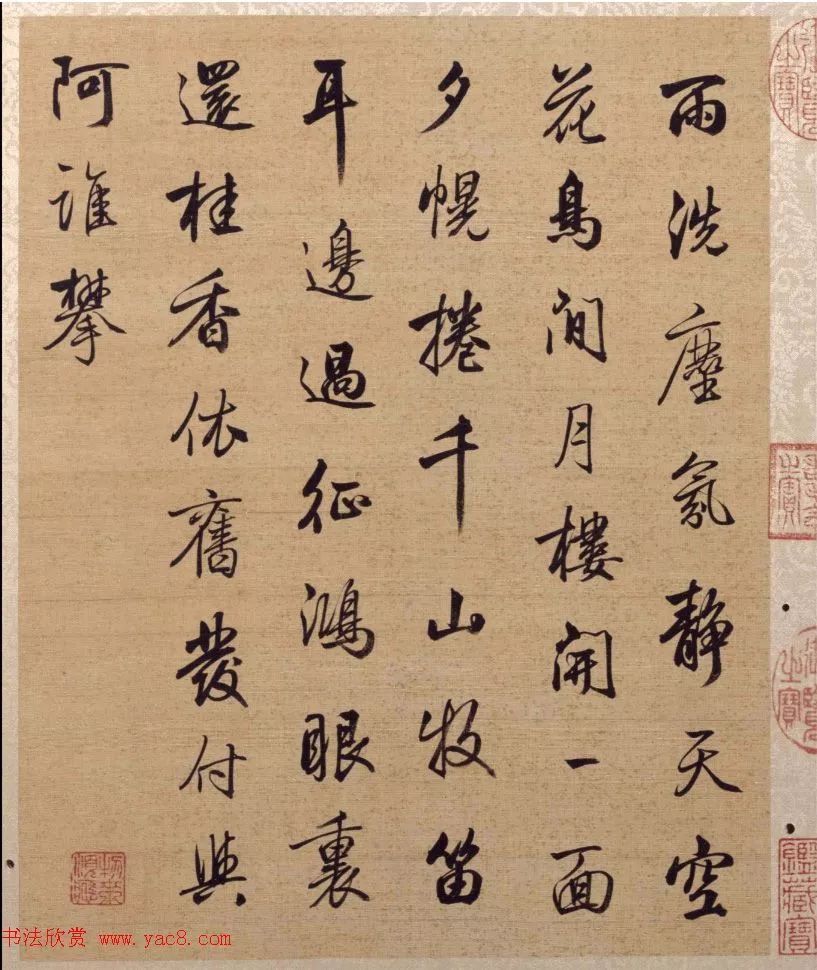 雨洗塵氛靜天空
花鳥間月樓開一面
夕幌捲千山牧笛
耳邊過征鴻眼裏
還桂香依舊發付與
阿誰攀
鑑藏寶
书法欣赏 www.yac8.com